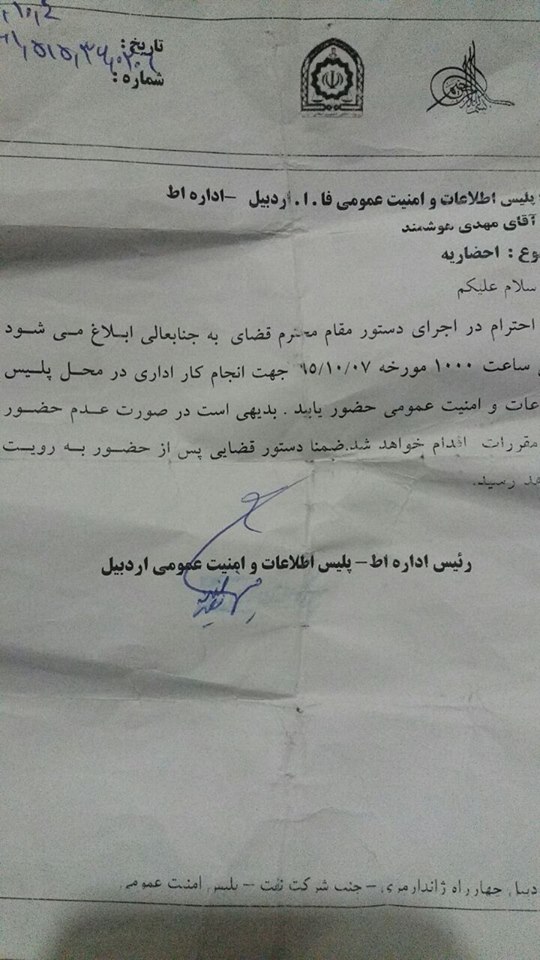 تاریخ:
شماره:
پلیس اطلاعات و امنیت عمومی فا.ا.اردبیل -اداره اط
آقای مهدی هوشمند
وع: احضاریه
سلام علیکم
احترام در اجرای دستور مقام محترم قضای به جنابعالی ابلاغ می شود
ساعت ۱۰۰۰ مورخه ۹۵/۱۰/۰۷ جهت انجام کار اداری در محل پلیس
عات و امنیت عمومی حضور یابید . بدیهی است در صورت عدم حضور
مقررات اقدام خواهد شد.ضمنا دستور قضایی پس از حضور به رویت
هد رسید.
رئیس اداره اط- پلیس اطلاعات و امنیت عمومی اردبیل
دبیل چهارراه ژاندارمری - جنب شرکت نفت - پلیس امنیت عمومی